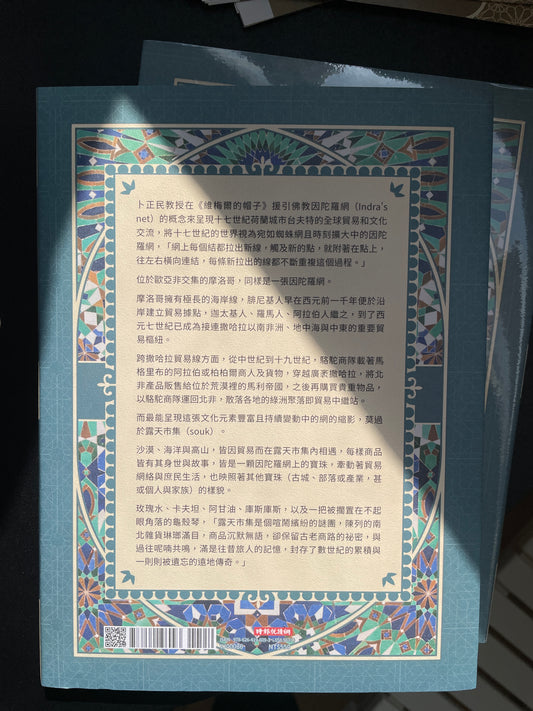 卜正民教授在《維梅爾的帽子》援引佛教因陀羅網（Indra's
net）的概念來呈現十七世紀荷蘭城市台夫特的全球貿易和文化
交流，將十七世紀的世界視為宛如蜘蛛網且時刻擴大中的因陀
羅網，「網上每個結都拉出新線，觸及新的點，就附著在點上，
往左右橫向連結，每條新拉出的線都不斷重複這個過程。」
位於歐亞非交集的摩洛哥，同樣是一張因陀羅網。
摩洛哥擁有極長的海岸線，腓尼基人早在西元前一千年便於沿
岸建立貿易據點，迦太基人、羅馬人、阿拉伯人繼之，到了西
元七世紀已成為接連撒哈拉以南非洲、地中海與中東的重要貿
易樞紐。
跨撒哈拉貿易線方面，從中世紀到十九世紀，駱駝商隊載著馬
格里布的阿拉伯或柏柏爾商人及貨物，穿越廣袤撒哈拉，將北
非產品販售給位於荒漠裡的馬利帝國，之後再購買貴重物品，
以駱駝商隊運回北非，散落各地的綠洲聚落即貿易中繼站。
而最能呈現這張文化元素豐富且持續變動中的網的縮影，莫過
於露天市集（souk）。
沙漠、海洋與高山，皆因貿易而在露天市集內相遇，每樣商品
皆有其身世與故事，皆是一顆因陀羅網上的寶珠，牽動著貿易
網絡與庶民生活，也映照著其他寶珠（古城、部落或產業，甚
或個人與家族）的樣貌。
玫瑰水、卡夫坦、阿甘油、庫斯庫斯，以及一把被擱置在不起
眼角落的龜殼琴，「露天市集是個喧鬧繽紛的謎團，陳列的南
北雜貨琳瑯滿目，商品沉默無語，卻保留古老商路的祕密，與
過往呢喃共鳴，滿是往昔旅人的記憶，封存了數世紀的累積與
一則則被遺忘的遠地傳奇。」
時報悅讀網